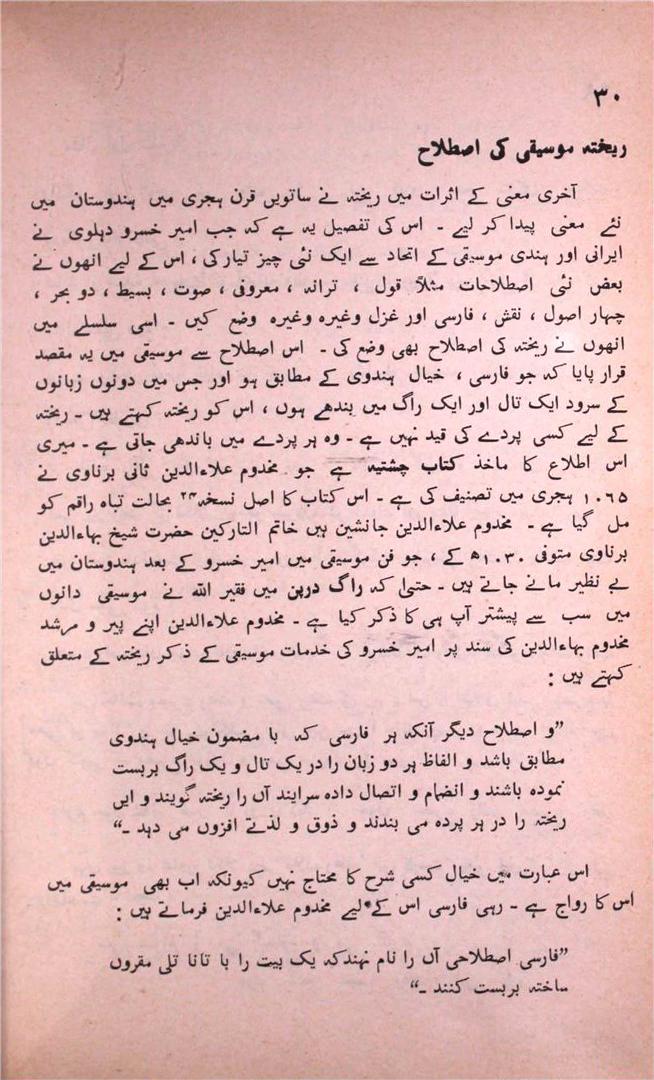 ۳۰
ریختہ موسیقی کی اصطلاح
آخری معنی کے اثرات میں ریختہ نے ساتویں قرن ہجری میں ہندوستان میں
نئے معنی پیدا کر لیے ۔ اس کی تفصیل یہ ہے کہ جب امیر خسرو دہلوی نے
ایرانی اور ہندی موسیقی کے اتحاد سے ایک نئی چیز تیار کی ، اس کے لیے انھوں نے
بعض نئی اصطلاحات مثلاً قول ، ترانہ ، معروفی ، صوت ، بسیط ، دو بحر ،
چہار اصول ، نقش ، فارسی اور غزل وغیرہ وغیرہ وضع کیں ۔ اسی سلسلے میں
انھوں نے ریختہ کی اصطلاح بھی وضع کی ۔ اس اصطلاح سے موسیقی میں یہ مقصد
قرار پایا کہ جو فارسی ، خیال ہندوی کے مطابق ہو اور جس میں دونوں زبانوں
کے سرود ایک تال اور ایک راگ میں بندھے ہوں ، اس کو ریختہ کہتے ہیں ۔ ریختہ
کے لیے کسی پردے کی قید نہیں ہے ۔ وہ ہر پردے میں باندھی جاتی ہے ۔ میری
اس اطلاع کا ماخذ کتاب چشتیہ ہے جو مخدوم علاءالدین ثانی برناوی نے
۱۰۶۵ ہجری میں تصنیف کی ہے ۔ اس کتاب کا اصل نسخہ۲۴ بحالت تباہ راقم کو
مل گیا ہے ۔ مخدوم علاءالدین جانشین ہیں خاتم التارکین حضرت شیخ بہاءالدین
برناوی متوفی ۱۰۳۰ھ کے ، جو فن موسیقی میں امیر خسرو کے بعد ہندوستان میں
بے نظیر مانے جاتے ہیں ۔ حتیٰ کہ راگ درپن میں فقیر اللہ نے موسیقی دانوں
میں سب سے پیشتر آپ ہی کا ذکر کیا ہے ۔ مخدوم علاءالدین اپنے پیر و مرشد
مخدوم بہاءالدین کی سند پر امیر خسرو کی خدمات موسیقی کے ذکر ریختہ کے متعلق
کہتے ہیں :
”و اصطلاح دیگر آنکہ ہر فارسی کہ با مضمون خیال ہندوی
مطابق باشد و الفاظ ہر دو زبان را در یک تال و یک راگ بربست
نمودہ باشند و انضمام و اتصال دادہ سرایند آں را ریختہ گویند و ایں
ریختہ را در ہر پردہ می بندند و ذوق و لذتے افزوں می دہد ۔“
اس عبارت میں خیال کسی شرح کا محتاج نہیں کیونکہ اب بھی موسیقی میں
اس کا رواج ہے ۔ رہی فارسی اس کے لیے مخدوم علاءالدین فرماتے ہیں :
”فارسی اصطلاحی آں را نام نہند کہ یک بیت را با تانا تلی مقروں
ساختہ بربست کنند ۔“